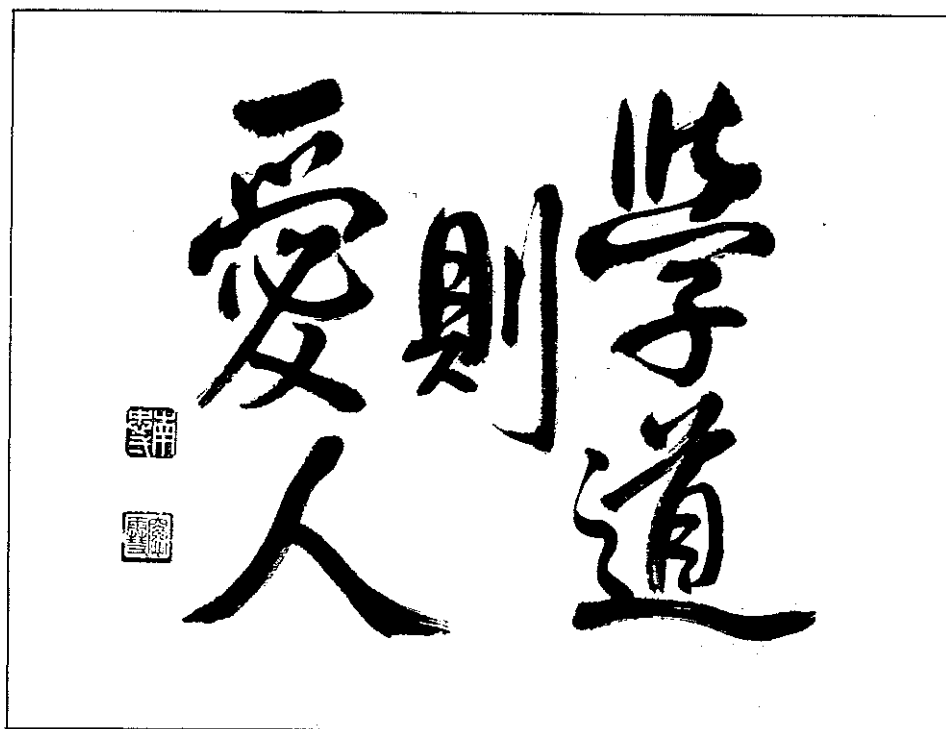 學道
則
愛人